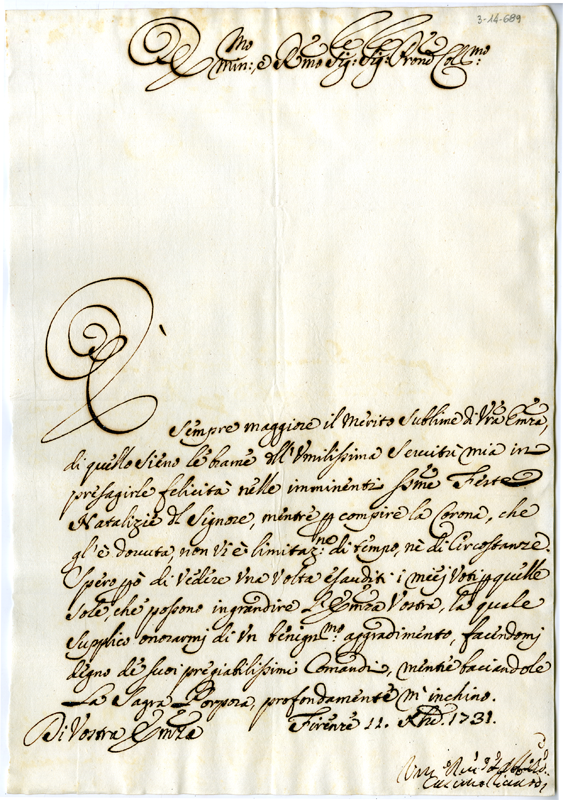 3-14-689
Em.mo
min: e R.mo Sig: Sig: Prōne Coll.mo:
È sempre maggiore il Merito Sublime di Vrā Emzā,
di quello sieno le brame dell'Vmilissima Servitù mia in
presagirle felicità nelle imminenti Ssm̄e Feste
Natalizie del Signore, mentre p compire la Corona, che
gl'è dovuta, non vi è limitaz.ne di tempo, nè di Circostanze.
Spero pò di vedere vna volta esauditi i miej voti p quelle
sole, che possono ingrandire L'Emzā Vostra, la quale
supplico onorarmj di vn benign.mo aggradimento, facendomj
degno de suoi pregiabilissimi Comandi, mentre baciandole
La Sagra Porpora, profondamente m'inchino.
Di Vostra Emzā Firenze 11. Xbre. 1731.